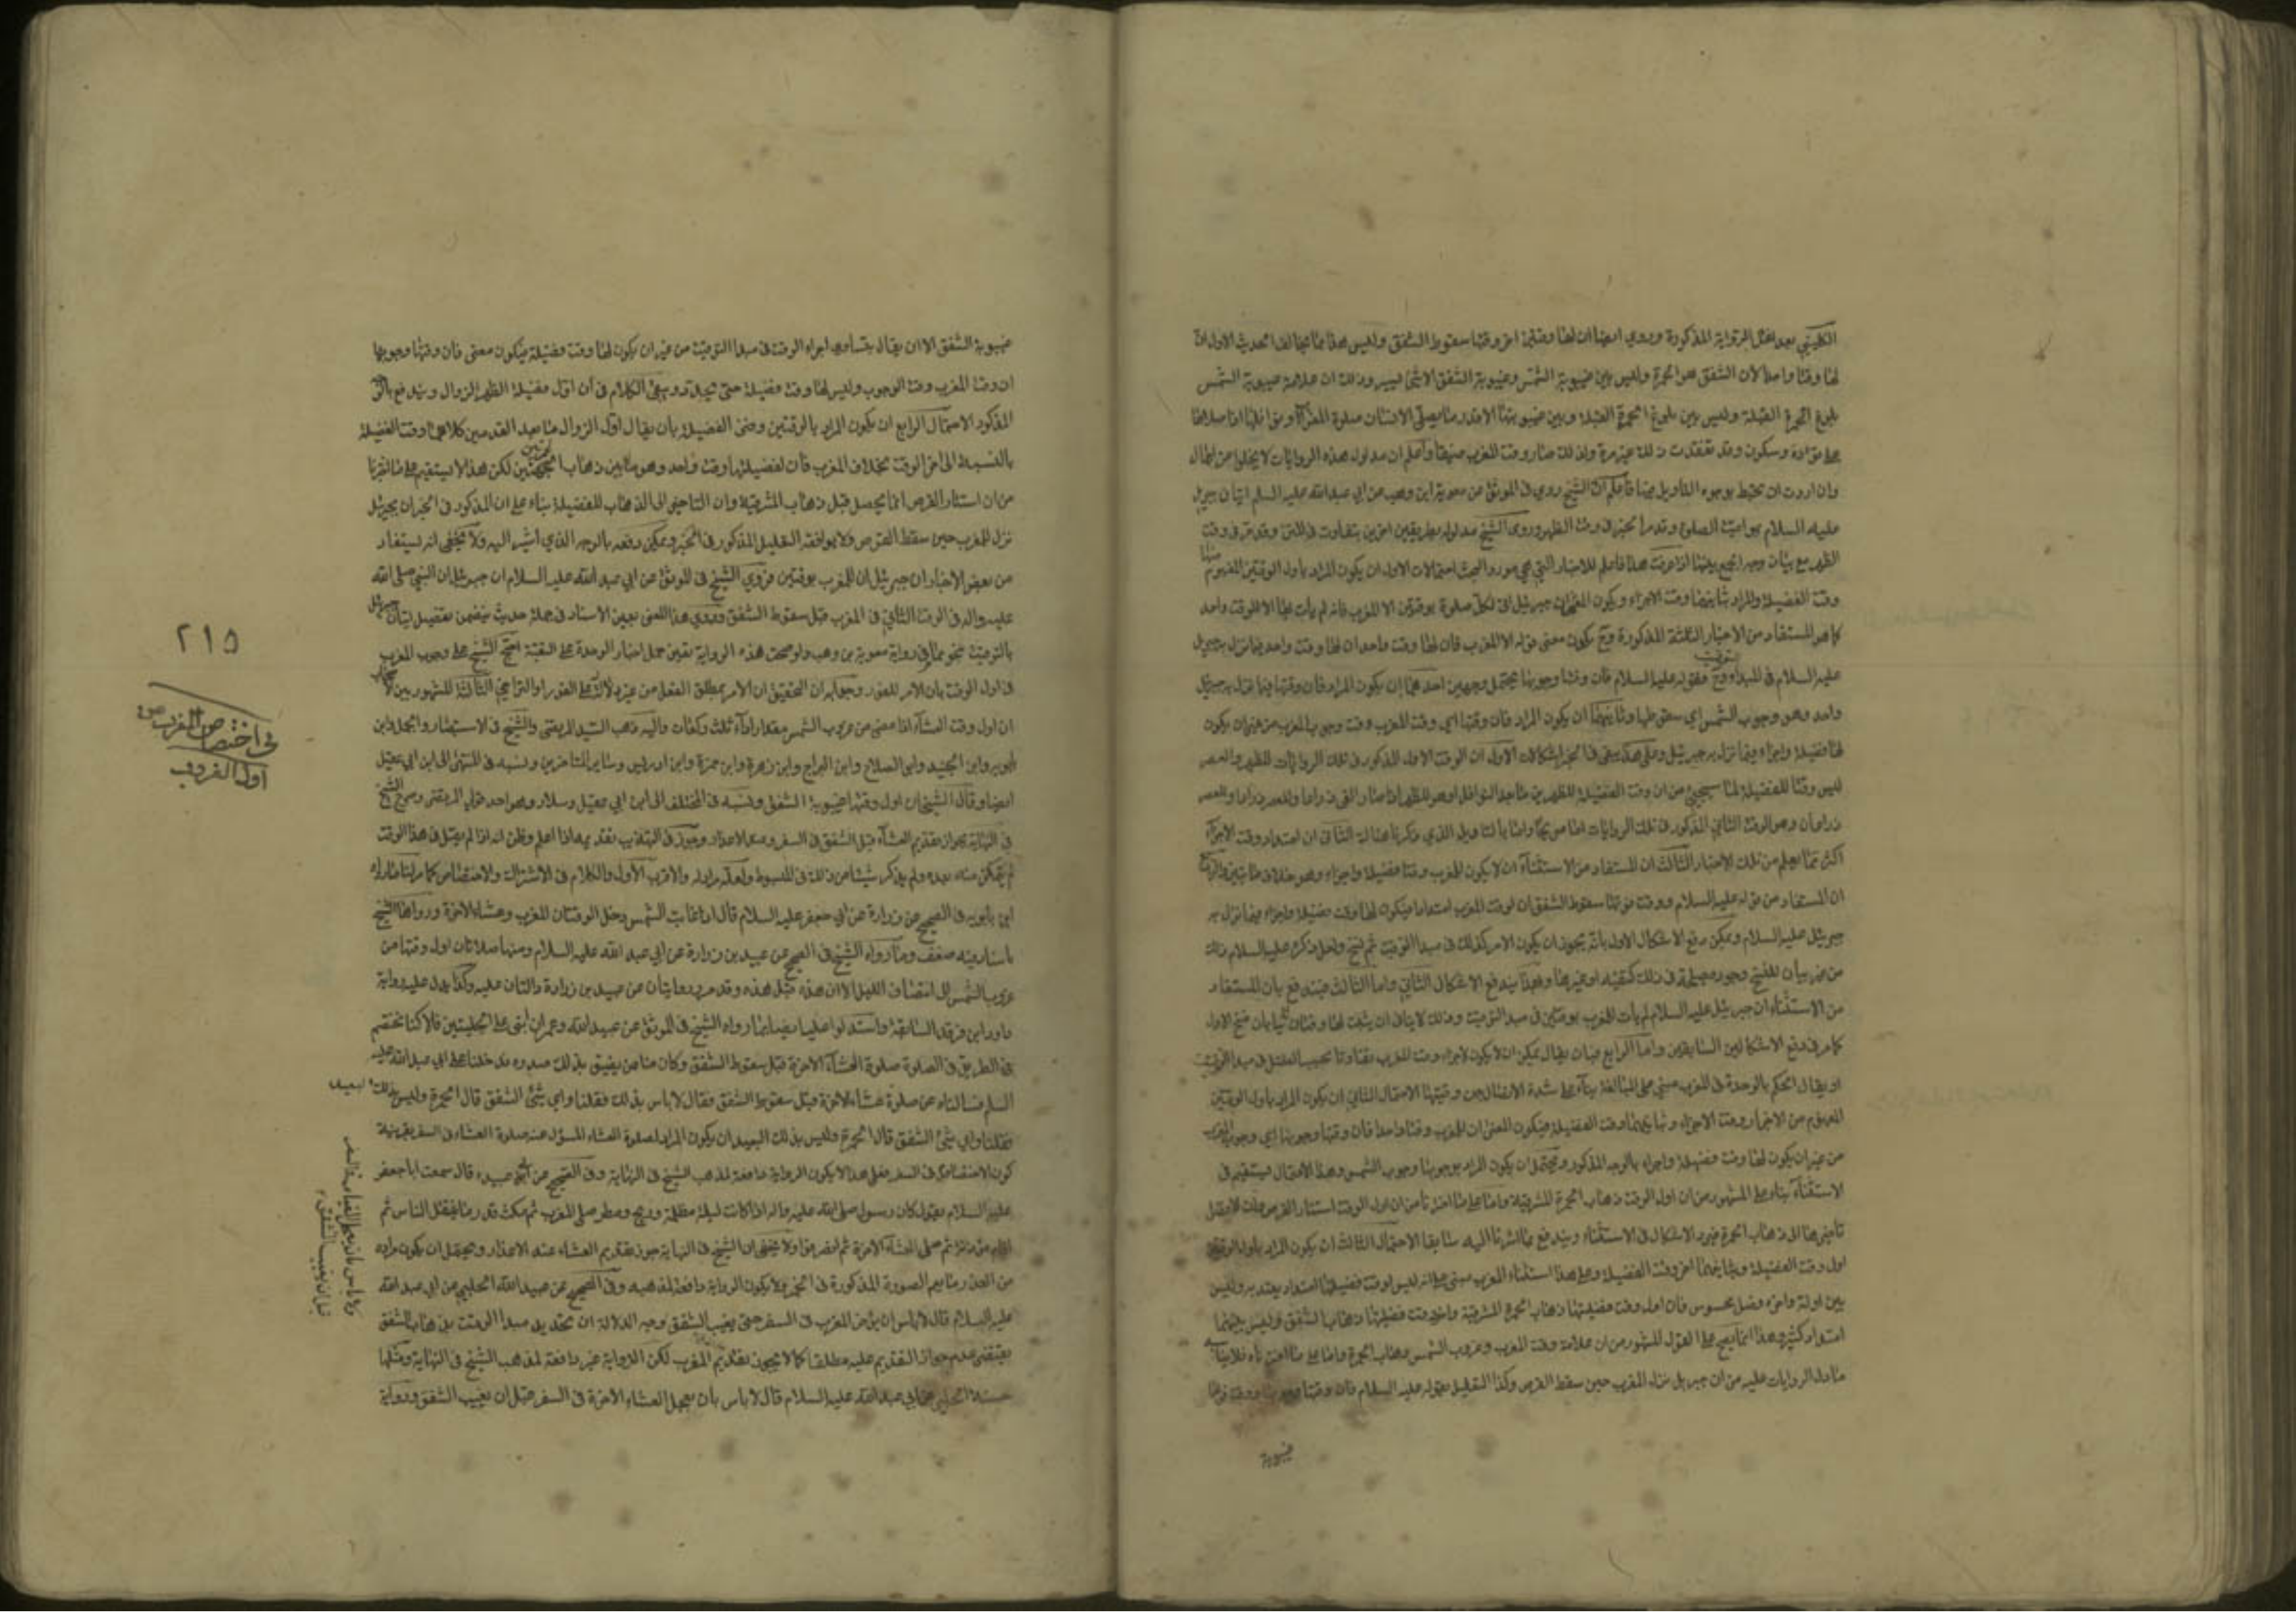 الكليني بعد نقل الرواية المذكورة وروي ايضا ان لها وقتين اخر وقتها سقوط الشفق وليس هذا مما يخالف الحديث الاول ان
لها وقتا واحدا لان الشفق هو الحمرة وليس بين غيبوبة الشمس وغيبوبة الشفق الا شئ يسير وذلك ان علامة غيبوبة الشمس
بلوغ الحمرة القبلة وليس بين بلوغ الحمرة القبلة وبين غيبوبتها الا قدر ما يصلي الانسان صلوة المغرب ونوافلها اذا صلاها
على تؤادة وسكون وقد تفقدت ذلك غير مرة ولذلك صار وقت المغرب ضيقا واعلم ان مدلول هذه الروايات لا يخلوا من اجمال
وان اردت ان تحيط بوجوه التأويل فيها فاعلم ان الشيخ روي في الموثق عن معوية ابن وهب عن ابي عبدالله عليه السلم اتيان جبريل
عليه السلام بمواقيت الصلوة وقد مر الخبر في وقت الظهر وروى الشيخ مدلوله بطريقين اخرين بتفاوت في المتن وقد مر في وقت
الظهر مع بيان وجه الجمع بينها اذا عرفت هذا فاعلم للاخبار التي هي مورد البحث احتمالات الاول ان يكون المراد باول الوقتين المفهوم منها
وقت الفضيلة والمراد بثانيهما وقت الاجزاء ويكون المعنى ان جبرئيل اتى لكل صلوة بوقتين الا المغرب فانه لم يأت لها الا لوقت واحد
كما هو المستفاد من الاخبار الثلثة المذكورة وح يكون معنى قوله الا المغرب فان لها وقت واحدا ان لها وقت واحد فيما نزل به جبريل
عليه السلام في المبداء وح فقوله عليه السلام فان وقتها وجوبها يحتمل وجهين احدهما ان يكون المراد فان وقتها فيما نزل به جبرئيل
واحد وهو وجوب الشمس اي سقوطها وثانيهما ان يكون المراد فان وقتها اي وقت المغرب وقت وجوب المغرب من غير ان يكون
لها فضيلة واجزاء فيما نزل به جبرئيل وعلى هذا يبقى في الخبر اشكالات الاول ان الوقت الاول المذكور في تلك الروايات للظهر والعصر
ليس وقتا للفضيلة لما سيجيئ من ان وقت الفضيلة للظهرين ما بعد النوافل او هو للظهر اذا صار الفئ ذراعا وللعصر ذراعا وللعصر
ذراعان وهو الوقت الثاني المذكور في تلك الروايات اما صريحا واما بالتاويل الذي ذكرنا هنالك الثاني ان امتداد وقت الاجزاء
اكثر مما يعلم من تلك الاخبار الثالث ان المستفاد من الاستثناء ان لا يكون للمغرب وقتا فضيلة واجزاء وهو خلاف ما تبين الرابع
ان المستفاد من قوله عليه السلام ووقت فوتها سقوط الشفق ان لوقت المغرب امتدادا فيكون لها وقت فضيلة واجزاء فيما نزل به
جبرئيل عليه السلام ويمكن رفع الاشكال الاول بانه يجوز ان يكون الامر كذلك في مبدا التوقيت ثم نسخ ولعل ذكره عليه السلام ذلك
من غير بيان للنسخ وجود مصلحة في ذلك كتقية او غيرها وبهذا يندفع الاشكال الثاني واما الثالث فيندفع بان المستفاد
من الاستثناء ان جبرئيل عليه السلام لم يأت للمغرب بوقتين في مبدا التوقيت وذلك لا ينافي ان يثبت لها وقتان ثانيا بان نسخ الاول
كما مر في دفع الاشكالين السابقين واما الرابع فبان يقال يمكن ان لا يكون لاجزاء وقت المغرب تفاوتا بحسب الفضل في مبدا التوقيت
او يقال الحكم بالوحدة في المغرب مبني على المبالغة بناء على شدة الاتصال بين وقتيها الاحتمال الثاني ان يكون المراد باول الوقتين
المفهوم من الاخبار وقت الاجزاء وثانيهما وقت الفضيلة فيكون المعنى ان للمغرب وقتا واحدا فان وقتها وجوبها اي وجوب المغرب
من غير ان يكون لها وقت فضيلة واجزاء بالوجه المذكور ويحتمل ان يكون المراد بوجوبها وجوب الشمس وهذا الاحتمال يستقيم في
الاستثناء بناء على المشهور من ان اول الوقت ذهاب الحمرة المشرقية واما على ما اخترناه من ان اول الوقت استتار القرص فلا
تاخيرها الى ذهاب الحمرة فيرد الاشكال في الاستثناء ويندفع بما اشرنا اليه سابقا الاحتمال الثالث ان يكون المراد باول الوقتين
اول وقت الفضيلة وبثانيهما اخر وقت الفضيلة وعلى هذا استثناء المغرب مبني على انه ليس لوقت فضيلتها امتداد يعتد به وليس
بين اوله واخره فصل محسوس فان اول وقت فضيلتها ذهاب الحمرة المشرقية واخر وقت فضيلتها ذهاب الشفق وليس بينهما
امتداد كثير وهذا انما يصح على القول المشهور من ان علامة وقت المغرب وغروب الشمس ذهاب الحمرة واما على ما اخترناه فلا
ما دل الروايات عليه من ان جبريل نزل المغرب حين سقط القرص وكذا التعليل بقوله عليه السلام فان وقتها وجوبها ووقت فوتها
غيبوبة
غيبوبة الشفق الا ان يقال بتساوي اجزاء الوقت في مبدا التوقيت من غير ان يكون لها وقت فضيلة فيكون معنى فان وقتها وجوبها
ان وقت المغرب وقت الوجوب وليس لها وقت فضيلة حتى يتعدد ويبقى الكلام في ان اول فضيلة الظهر الزوال ويندفع بالوجه
المذكور الاحتمال الرابع ان يكون المراد بالوقتين وقتي الفضيلة بان يقال اول الزوال وما بعد القدمين كلاهما وقت الفضيلة
بالنسبة الى اخر الوقت بخلاف المغرب فان لفضيلتها وقت واحد وهو ما بين ذهاب الحمرتين لكن هذا لا يستقيم على ما اخترنا
من ان استتار القرص انما يحصل قبل ذهاب المشرقية وان التاخير الى الذهاب للفضيلة بناء على ان المذكور في الخبر ان جبرئيل
نزل للمغرب حين سقط القرص فلا يوافقه التعليل المذكور في الخبر ويمكن دفعه بالوجه الذي اشير اليه ولا يخفى انه يستفاد
من بعض الاخبار ان جبرئيل ان للمغرب بوقتين فروي الشيخ في الموثق عن ابي عبد الله عليه السلام ان جبرئيل اتى النبي صلى الله
عليه واله في الوقت الثاني في المغرب قبل سقوط الشفق وروي هذا المعنى بعين الاسناد في جملة حديث يتضمن تفصيل اتيان جبرئيل
بالتوقيت نحو مما في رواية معوية بن وهب ولو صحت هذه الرواية تعين حمل اخبار الوحدة على التقية احتج الشيخ على وجوب المغرب
في اول الوقت بان الامر للفور وجوابه ان التحقيق ان الامر بمطلق الفعل من غير دلالة على الفور او التراخي الثالثة المشهور بين الاصحاب
ان اول وقت العشاء اذا مضى من غروب الشمس مقدار اداء ثلث ركعات واليه ذهب السيد المرتضى والشيخ في الاستبصار والجمل وابن
بابويه وابن الجنيد وابي الصلاح وابن البراج وابن زهرة وابن حمزة وابن ادريس وسائر المتاخرين ونسبه في المنتهى الى ابن ابي عقيل
ايضا وقال الشيخان اول وقتها غيبوبة الشفق ونسبه في المختلف الى ابن ابي عقيل وسلار وهو احد قولي المرتضى وصرح الشيخ
في النهاية بجواز تقديم العشاء قبل الشفق في السفر وعند الاعذار وجوز في التهذيب تقديمه اذا علم وظن انه اذا لم يصل في هذا الوقت
لم يتمكن منه بعده ولم يذكر شيئا من ذلك في المبسوط ولعله مراده والاقرب الاول والكلام في الاشتراك والاختصاص كما مر لنا ما رواه
ابن بابويه في الصحيح عن زرارة عن ابي جعفر عليه السلام قال اذا غابت الشمس دخل الوقتان المغرب وعشاء الاخرة ورواها الشيخ
باسناد فيه ضعف وما رواه الشيخ في الصحيح عن عبيد بن زرارة عن ابي عبد الله عليه السلام ومنها صلاتان اول وقتها من
غروب الشمس الى انتصاف الليل الا ان هذه قبل هذه وقد مر روايتان عن عبيد بن زرارة دالتان عليه وكذا يدل عليه رواية
داود ابن فرقد السابقة واستدلوا عليه ايضا بما رواه الشيخ في الموثق عن عبيدالله وعمران ابني علي الحلبيين قالا كنا نختصم
في الطريق في الصلوة صلوة العشاء الاخرة قبل سقوط الشفق وكان منا من يضيق بذلك صدره فدخلنا على ابي عبد الله عليه
السلم فسالناه عن صلوة عشاء الاخرة قبل سقوط الشفق فقال لا باس بذلك فقلنا واي شئ الشفق قال الحمرة وليس بذلك البعيد
فقلنا واي شئ الشفق قال الحمرة وليس بذلك البعيد ان يكون المراد بصلوة العشاء المسؤل عنه صلوة العشاء في السفر بقرينة
كون الاختصام في السفر فعلى هذا لا يكون الرواية دافعة لمذهب الشيخ في النهاية وفي الصحيح عن ابي عبيدة قال سمعت ابا جعفر
عليه السلام يقول كان رسول صلى الله عليه واله اذا كانت ليلة مظلمة وريح ومطر صلى المغرب ثم مكث قدر ما يتنفل الناس ثم
اقام مؤذنه ثم صلى العشاء الاخرة ثم انصرفوا ولا يخفى ان الشيخ في النهاية جوز تقديم العشاء عند الاعذار ويحتمل ان يكون مراده
من العذر ما يعم الصورة المذكورة في الخبر فلا يكون الرواية دافعة لمذهبه وفي الصحيح عن عبيد الله الحلبي عن ابي عبد الله
عليه السلام قال لا باس ان يؤخر المغرب في السفر حتى يغيب الشفق وجه الدلالة ان تحديد مبدا الوقت بذهاب الشفق
يقتضي عدم جواز التقديم عليه مطلقا كما لا يجوز تقديم المغرب لكن الرواية غير دافعة لمذهب الشيخ في النهاية ومثلها
حسنة الحلبي عن ابي عبد الله عليه السلام قال لا باس بان يعجل العشاء الاخرة في السفر قبل ان يغيب الشفق ورواية
ولا باس بان يعجل العتمة في السفر
قبل ان يغيب الشفق
٢١٥
في اختصاص المغرب من
اول الغروب